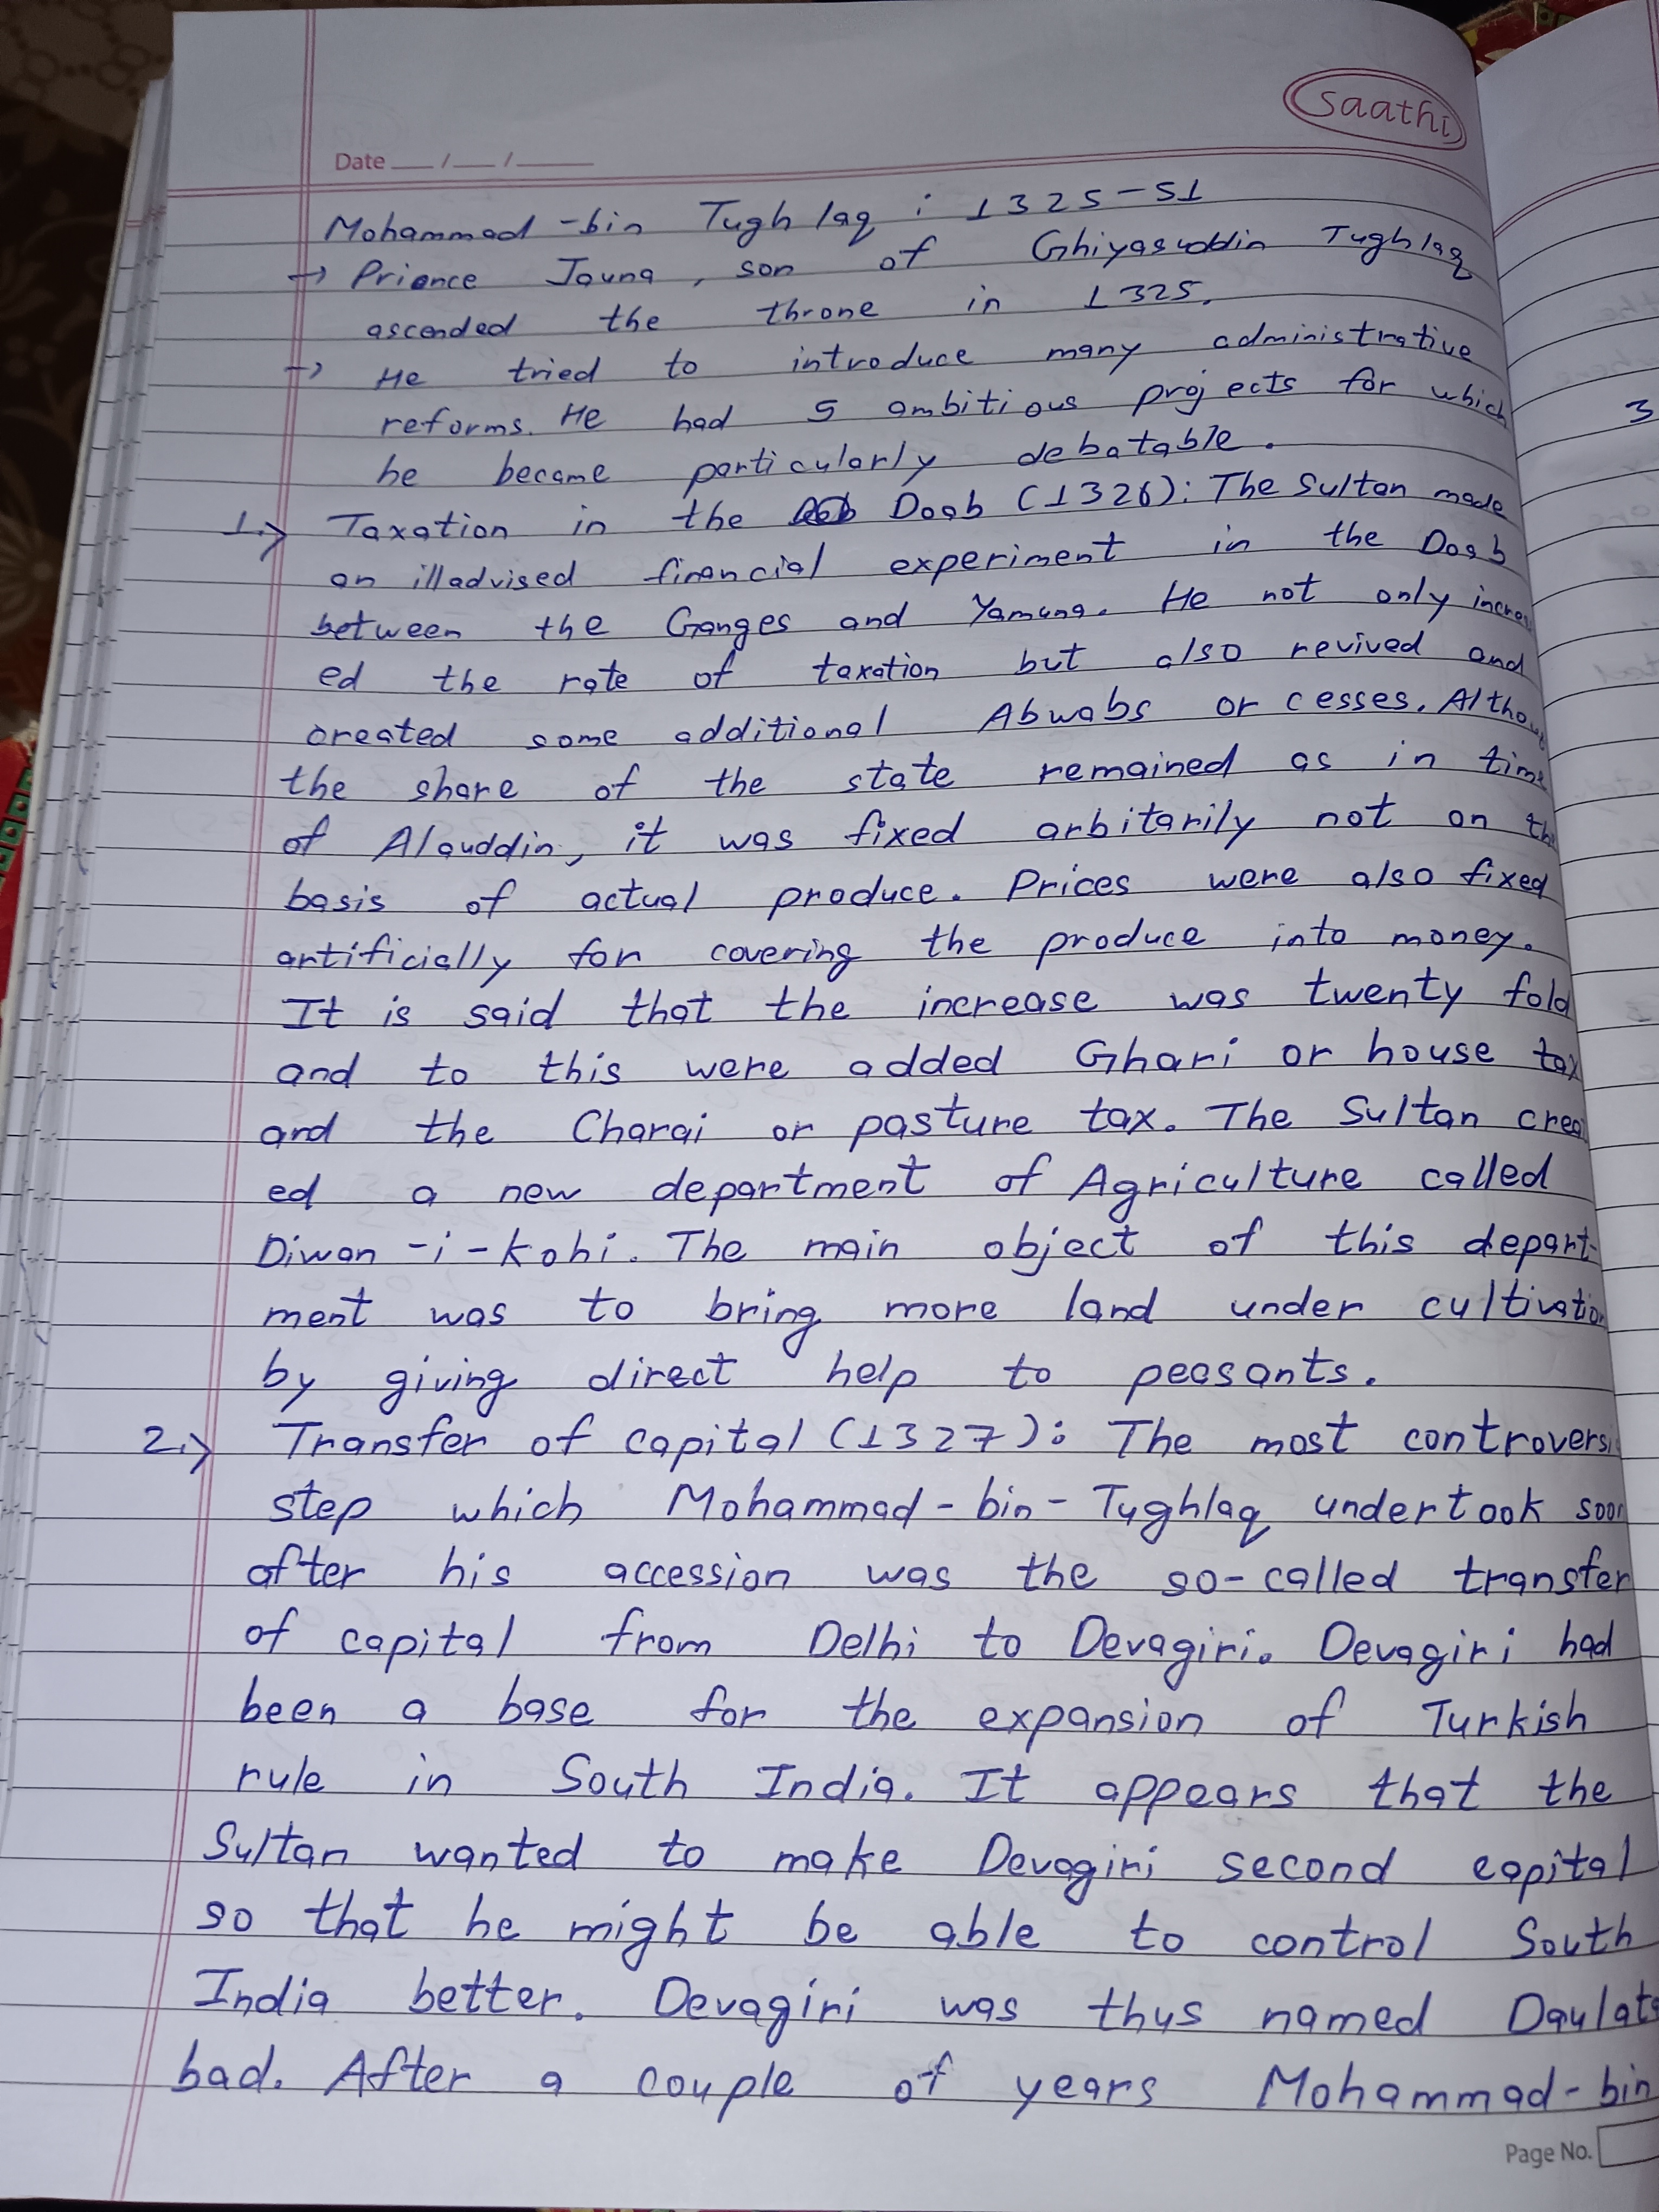 saathi
Date __/__/____
Mohammad -bin Tughlaq : 1325-51
→ Prience Jauna, son of Ghiyasuddin Tughlaq
ascended the throne in 1325.
→ He tried to introduce many administrative
reforms. He had 5 ambitious projects for which
he became particularly debatable.
1.> Taxation in the Doab (1326): The Sultan made
an illadvised financial experiment in the Doab
between the Ganges and Yamuna. He not only increas
ed the rate of taxation but also revived and
created some additional Abwabs or cesses. Althou
the share of the state remained as in time
of Alauddin, it was fixed arbitarily not on the
basis of actual produce. Prices were also fixed
artificially for covering the produce into money.
It is said that the increase was twenty fold
and to this were added Ghari or house tax
and the Charai or pasture tax. The Sultan creat
ed a new department of Agriculture called
Diwan -i-kohi. The main object of this depart-
ment was to bring more land under cultivation
by giving direct help to peasants.
2.> Transfer of capital (1327): The most controversi
step which Mohammad-bin-Tughlaq undertook soon
after his accession was the so-called transfer
of capital from Delhi to Devagiri. Devagiri had
been a base for the expansion of Turkish
rule in South India. It appears that the
Sultan wanted to make Devagiri second capital
so that he might be able to control South
India better. Devagiri was thus named Daulata
bad. After a couple of years Mohammad-bin
Page No.
3